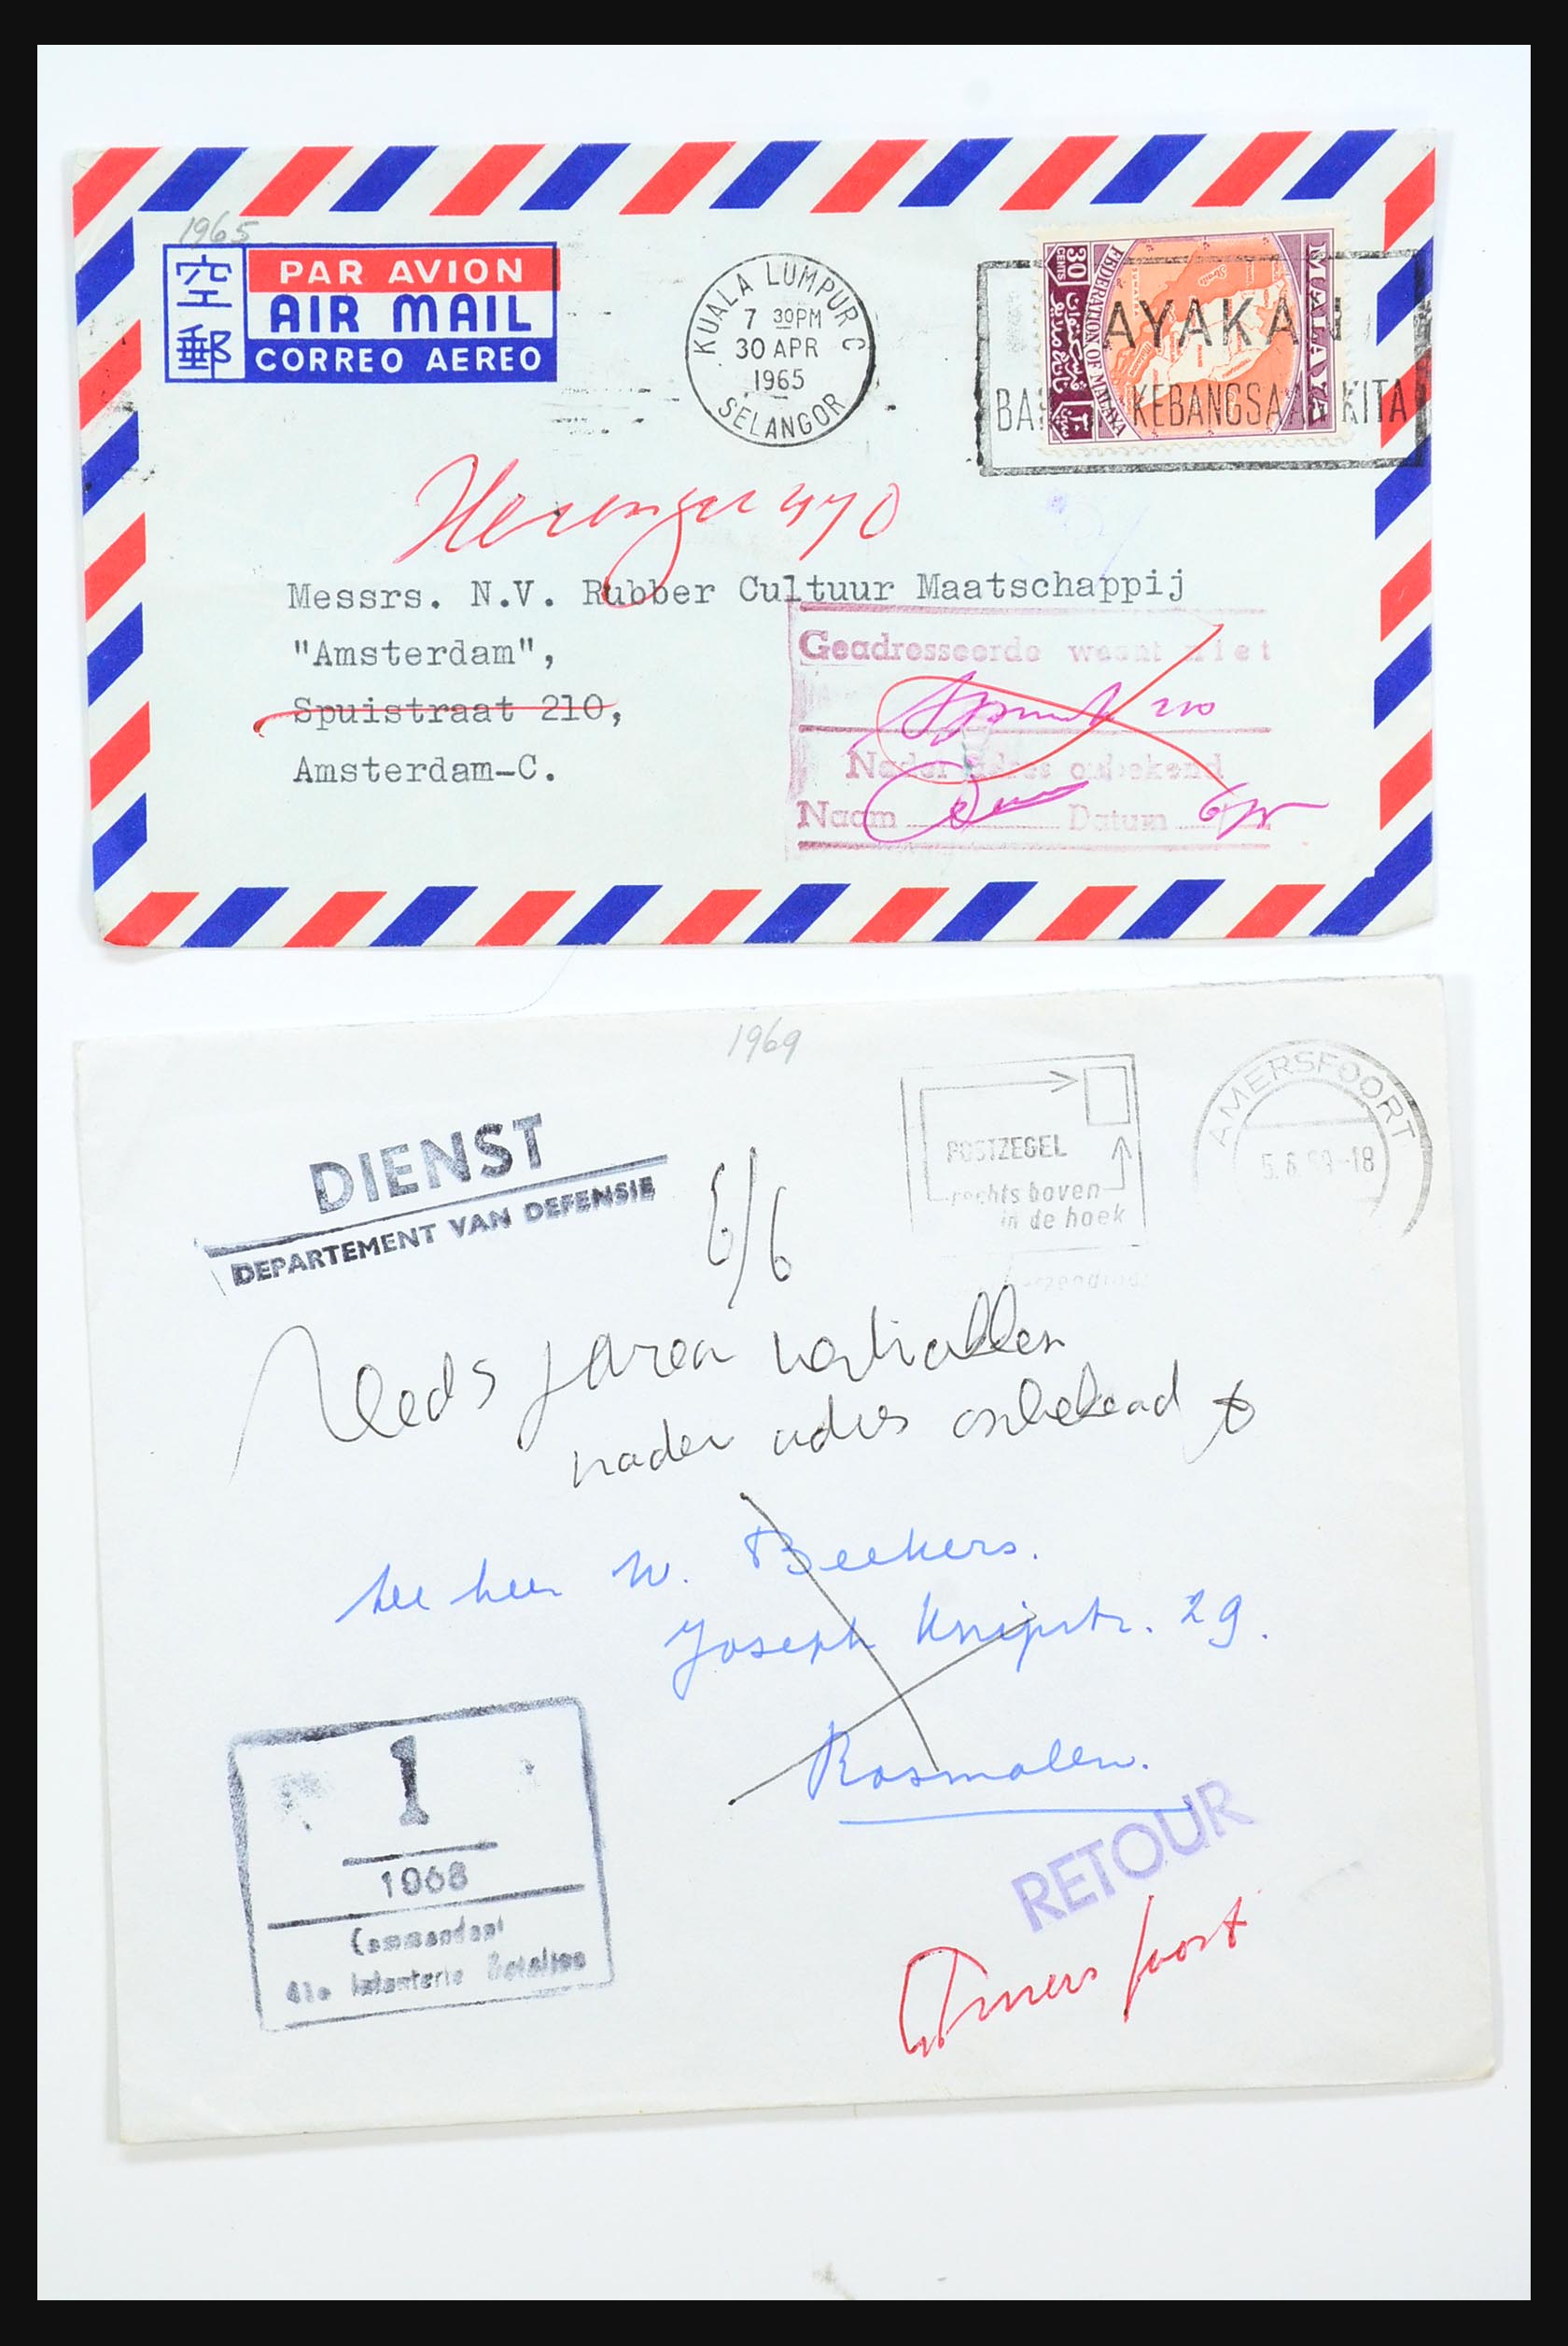 1965
空郵
PAR AVION
AIR MAIL
CORREO AEREO
KUALA LUMPUR C
7 30PM
30 APR
1965
SELANGOR
30 CENTS
FEDERATION OF MALAYA
MALAYA
AYAKAN
BA KEBANGSAAN KITA
470
Messrs. N.V. Rubber Cultuur Maatschappij
"Amsterdam",
Spuistraat 210,
Amsterdam-C.
Geadresseerde woont niet
210
Nader adres onbekend
Naam Datum
1969
DIENST
DEPARTEMENT VAN DEFENSIE
6/6
POSTZEGEL
rechts boven
in de hoek
AMERSFOORT
5.6.69-18
Reeds jaren vertrokken
nader adres onbekend
W. Beekers.
Joseph Knipstr. 29.
Rosmalen.
1
1968
Commandant
41e Infanterie Bataljon
RETOUR
Amersfoort